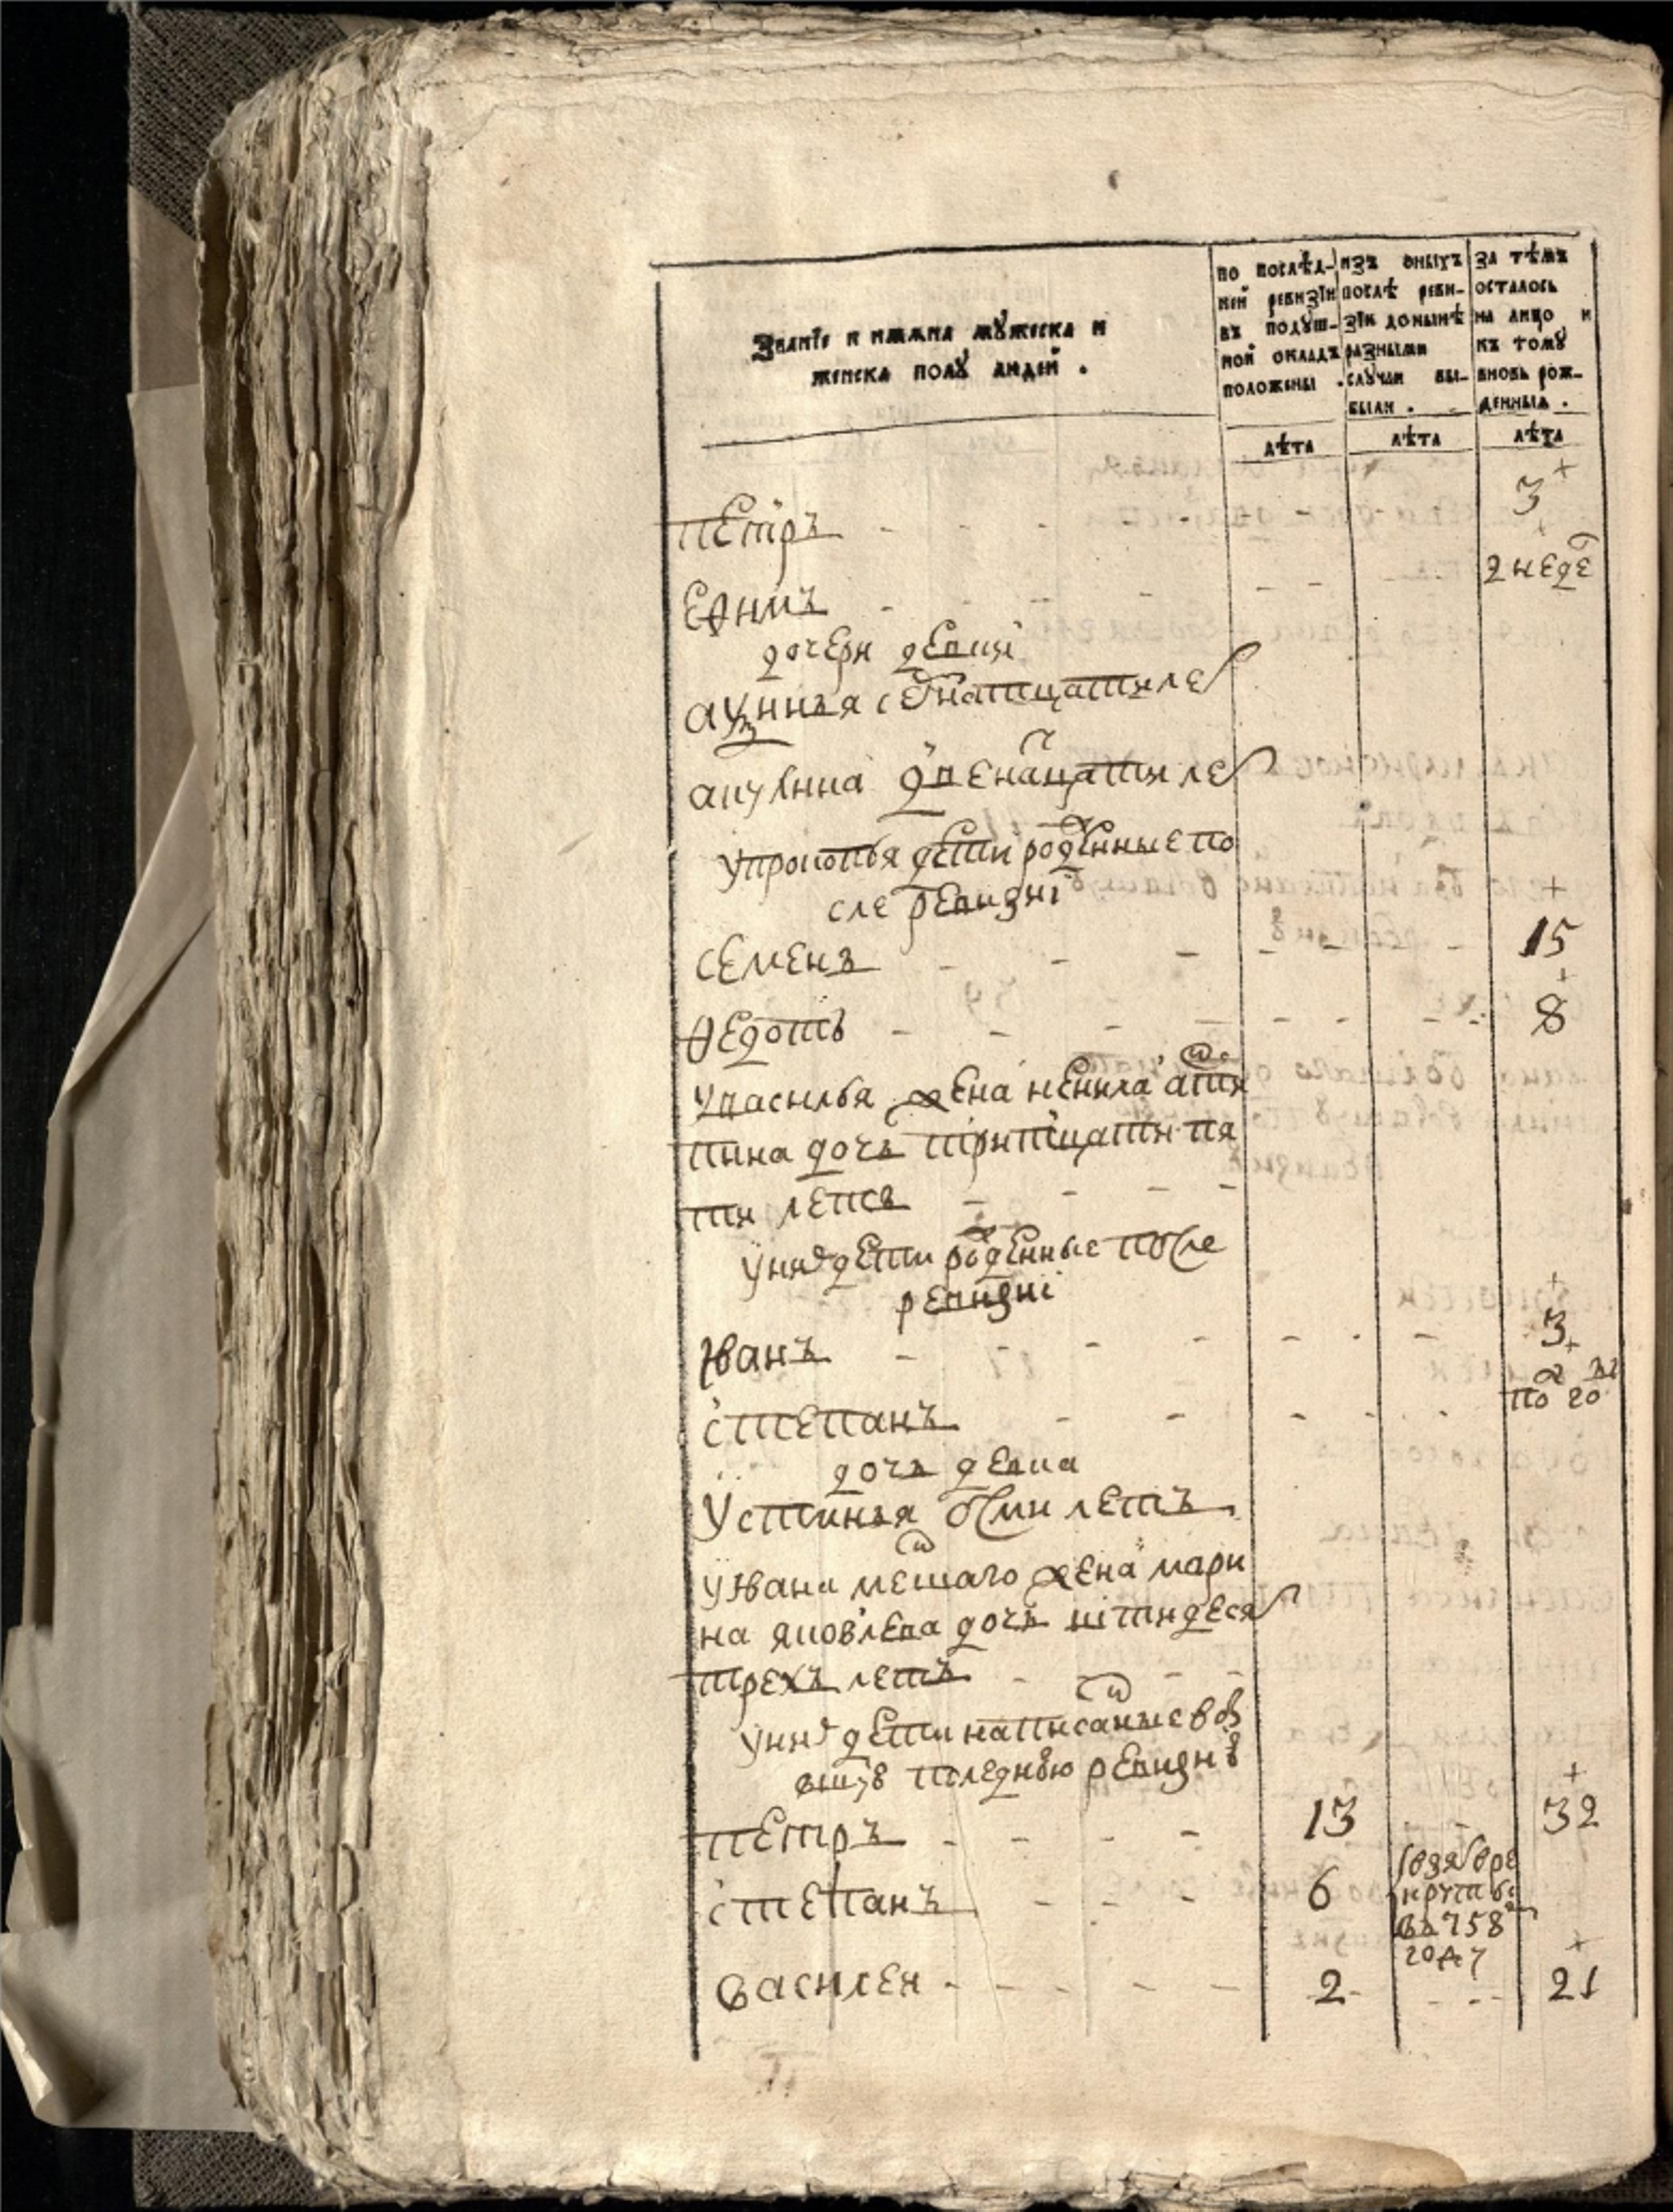 Званїе и имяна мужеска и
женска полу людей .
по послѣд-
ней ревизїи
въ подуш-
ной окладъ
положены .
изъ оныхъ
послѣ реви-
зїи донынѣ
разными
случаи вы-
были .
за тѣмъ
осталось
на лицо и
къ тому
вновь рож-
денныя .
лѣта
лѣта
лѣта
петръ - - - 3
ефимъ - - - 2 неде
дочери девки
семнатцати лет
акулина двенацати лет
у прокопья дети рожденные по
сле ревизиї
семенъ - - - 15
ѳедотъ - - - 8
у василья жена ненила
дочь тритцати пя
ти летъ - - -
у них дети рожденные после
ревизиї
Иванъ - - - 3
степанъ - - - по году
дочь девка
устинья осми летъ
у Ивана меншаго жена мари
на яковлева дочь пітидесят
трехъ летъ - - -
у них дети написаные в
послѣднюю ревизию
петръ - - - 13 - - 32
степанъ - - - 6
взят в ре
круты
въ 758
году
василеи - - - 2 - - 21